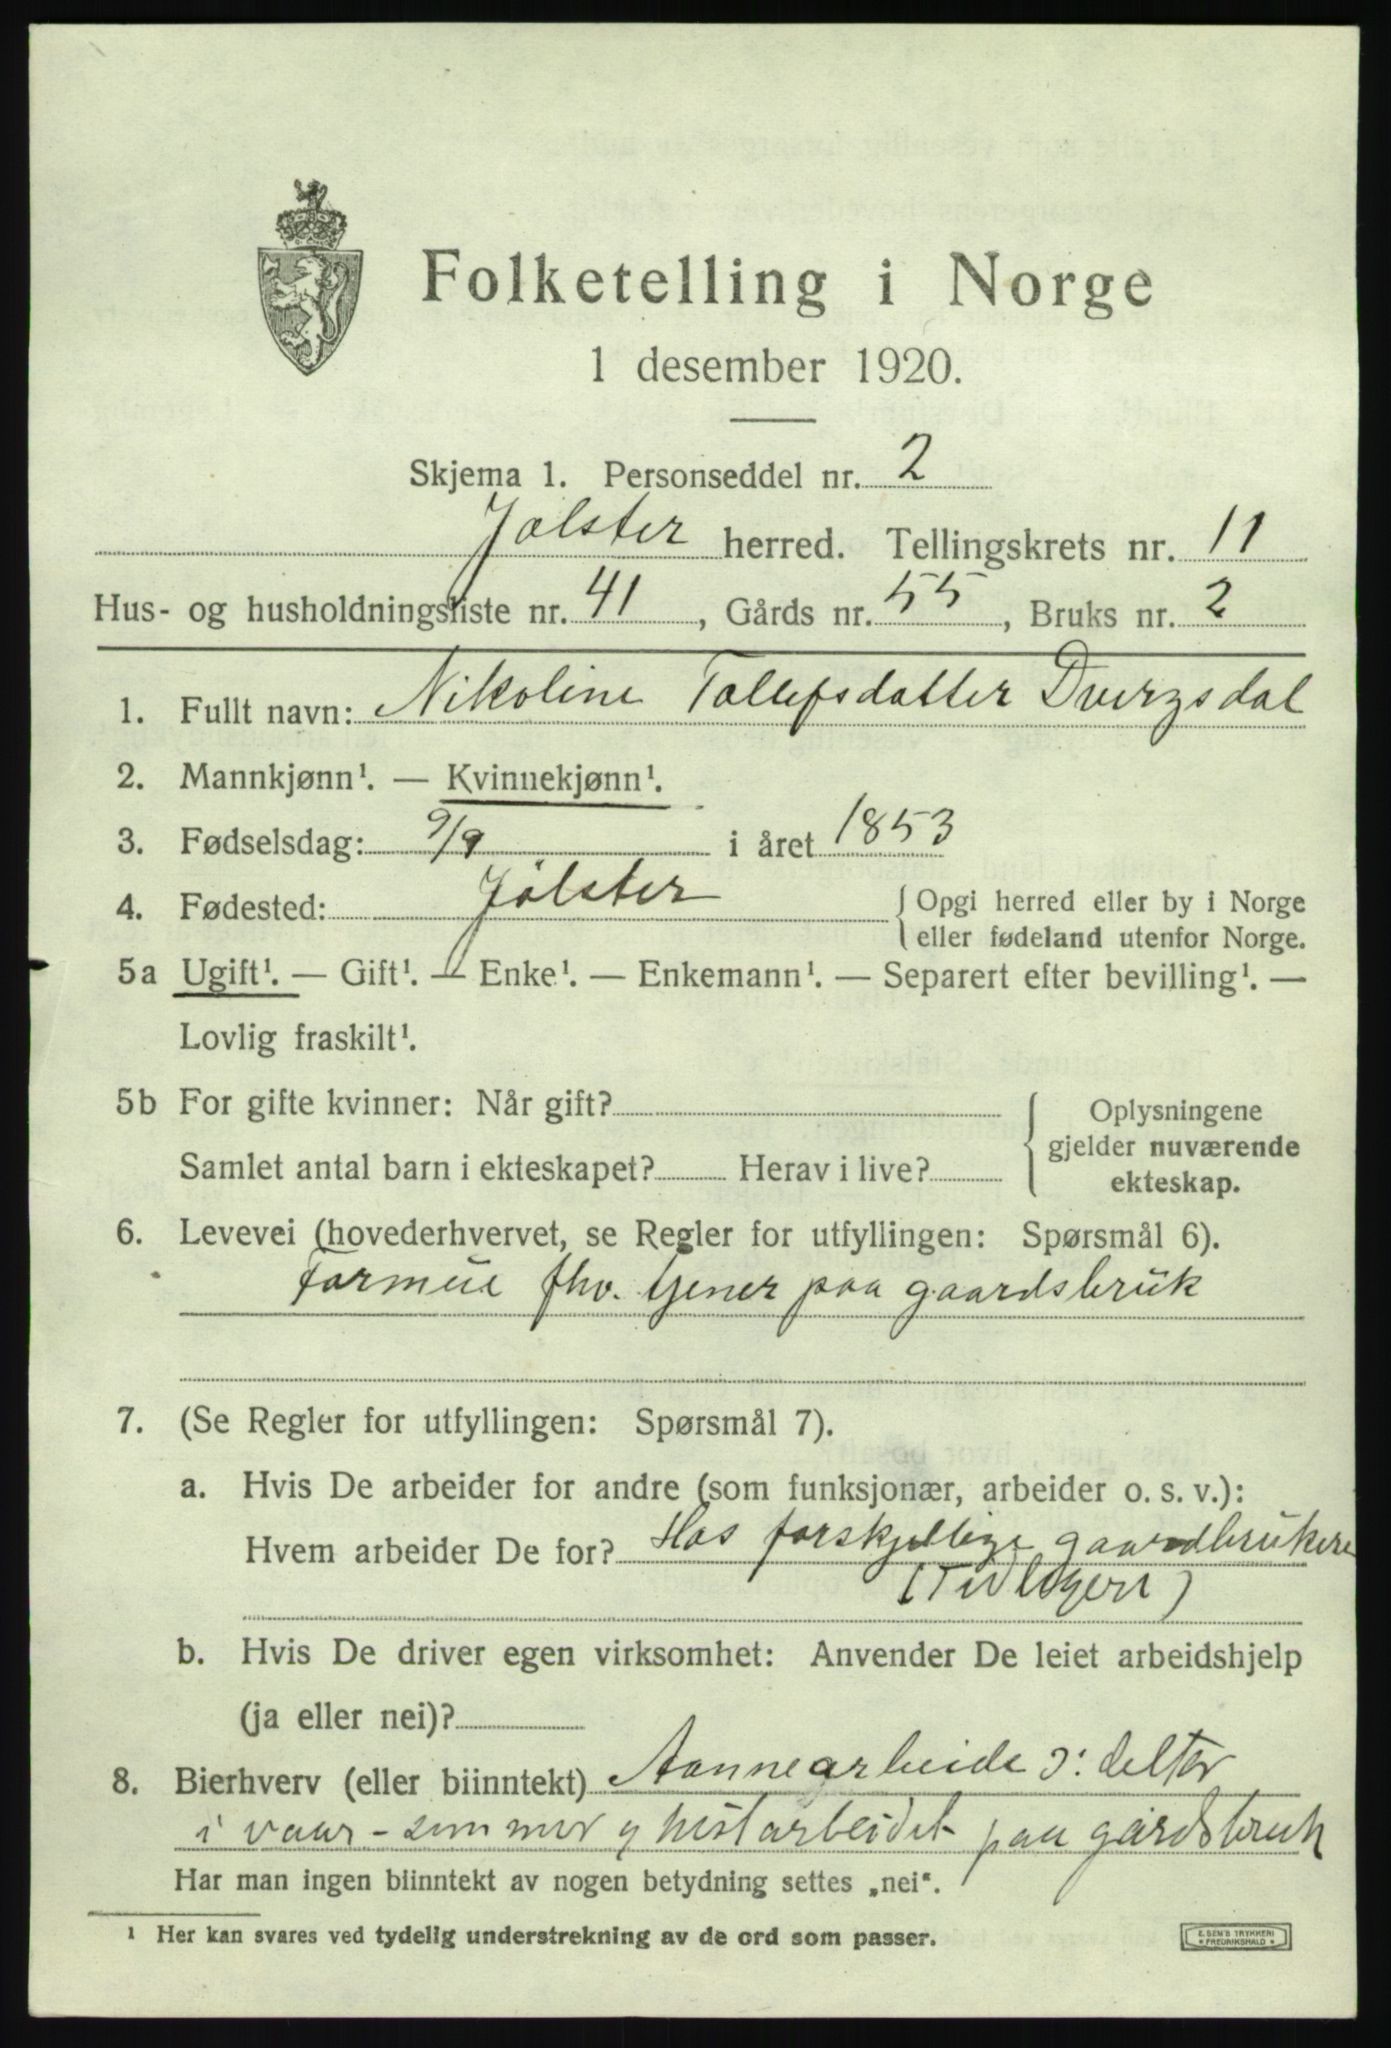 Folketelling i Norge
1 desember 1920.
Skjema 1. Personseddel nr. 2
Jølster herred. Tellingskrets nr. 11
Hus- og husholdningsliste nr. 41, Gårds nr. 55, Bruks nr. 2
1. Fullt navn: Nikoline Tollefsdatter Dvergsdal
2. Mannkjønn¹. — Kvinnekjønn¹.
3. Fødselsdag: 9/9 i året 1853
4. Fødested: Jølster { Opgi herred eller by i Norge
eller fødeland utenfor Norge.
5a Ugift¹. — Gift¹. — Enke¹. — Enkemann¹. — Separert efter bevilling¹. —
Lovlig fraskilt¹.
5b For gifte kvinner: Når gift? { Oplysningene
gjelder nuværende
Samlet antal barn i ekteskapet? Herav i live?
ekteskap.
6. Levevei (hovederhvervet, se Regler for utfyllingen: Spørsmål 6).
Formue fhv. tjener paa gaardsbruk
7. (Se Regler for utfyllingen: Spørsmål 7).
a. Hvis De arbeider for andre (som funksjonær, arbeider o. s. v.):
Hvem arbeider De for? Hos forskjellige gaardbrukere
(Tidligere)
b. Hvis De driver egen virksomhet: Anvender De leiet arbeidshjelp
(ja eller nei)?
8. Bierhverv (eller biinntekt) Aannearbeide ɔ: deltar
i vaar-sommer og høstarbeidet paa gårdsbruk
Har man ingen biinntekt av nogen betydning settes „nei“.
¹ Her kan svares ved tydelig understrekning av de ord som passer.
E. SEM'S TRYKKERI
* FREDRIKSHALD *